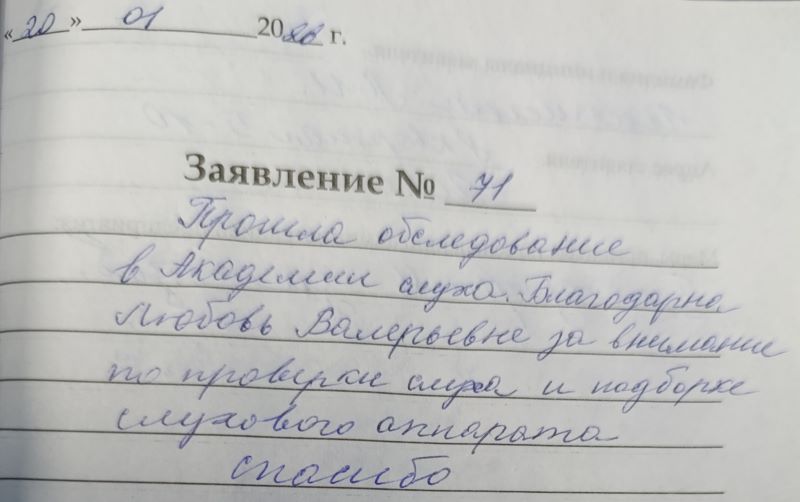 «20» 01 2026 г.
Заявление № 71
Прошла обследование
в Академии слуха. Благодарна
Любовь Валерьевне за внимание
по проверки слуха и подборке
слухового аппарата
спасибо